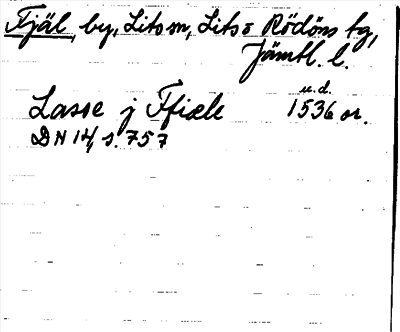 Fjäl, by, Lits sn, Lits o Rödöns tg,
Jämtl. l.
Lasse j Ffiæle u.d. 1536 or.
DN 14, s. 757